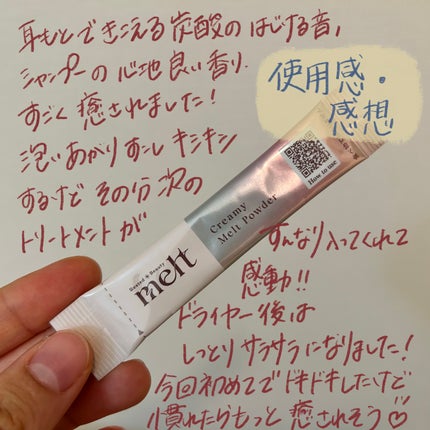 耳もとできこえる炭酸のはじける音,
シャンプーの心地良い香り.
すごく癒されました!
使用感・
感想
洗いあがりすこしキシキシ
するけどその分次の
トリートメントが
すんなり入ってくれて
感動!!
ドライヤー後は
しっとりサラサラになりました!
今回初めてでドキドキしたけど
慣れたらもっと癒されそう♡
How to use
Creamy
Melt Powder
Rested & Beauty
melt